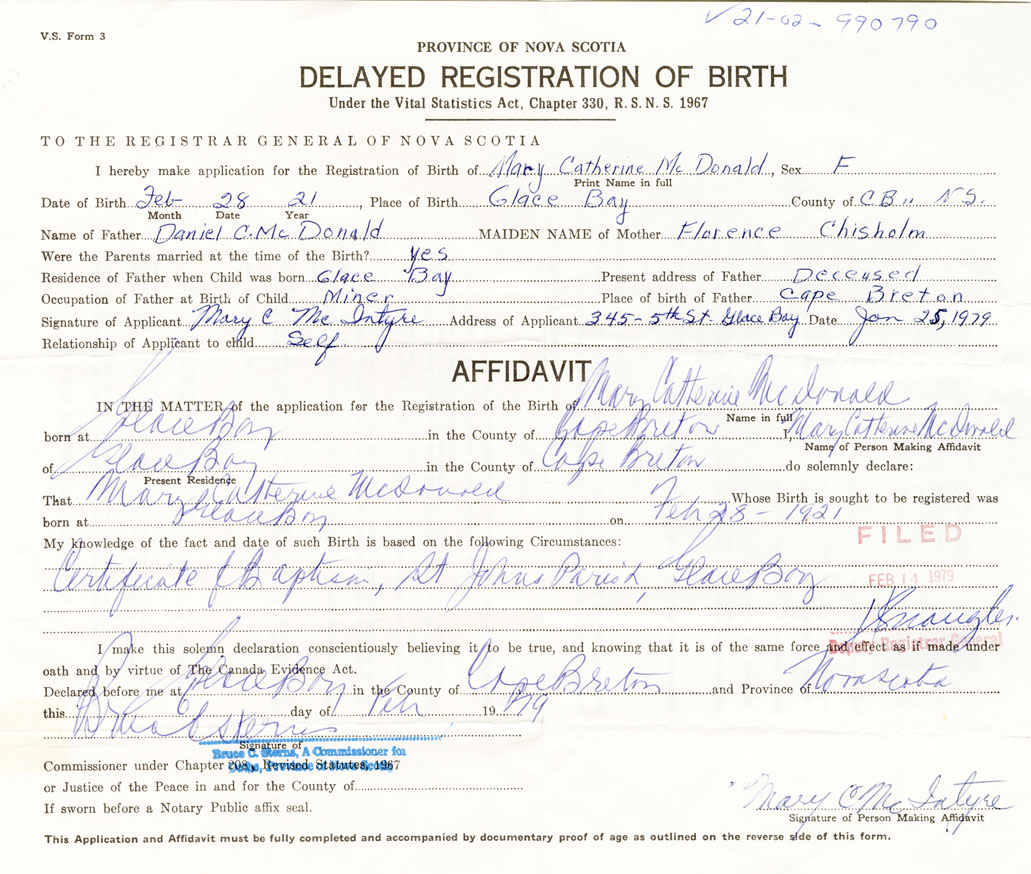 21-02-990790
V.S. Form 3
PROVINCE OF NOVA SCOTIA
DELAYED REGISTRATION OF BIRTH
Under the Vital Statistics Act, Chapter 330, R.S.N.S. 1967
TO THE REGISTRAR GENERAL OF NOVA SCOTIA
I hereby make application for the Registration of Birth of Mary Catherine McDonald, Sex F
Print Name in full
Date of Birth Feb 28 21, Place of Birth Glace Bay County of C.B., N.S.
Month Date Year
Name of Father Daniel C. McDonald MAIDEN NAME of Mother Florence Chisholm
Were the Parents married at the time of the Birth? yes
Residence of Father when Child was born Glace Bay Present address of Father Deceused
Occupation of Father at Birth of Child Miner Place of birth of Father Cape Breton
Signature of Applicant Mary C Mc Intyre Address of Applicant 345-5th St. Glace Bay Date Jan 25, 1979
Relationship of Applicant to child Self
AFFIDAVIT
IN THE MATTER of the application for the Registration of the Birth of Mary Catherine McDonald
Name in full
born at Glace Bay in the County of Cape Breton I, Mary Catherine McDonald
Name of Person Making Affidavit
of Glace Bay in the County of Cape Breton do solemnly declare:
Present Residence
That Mary Catherine McDonald Whose Birth is sought to be registered was
born at Glace Bay on Feb 28 - 1921
My knowledge of the fact and date of such Birth is based on the following Circumstances:
FILED
Certificate of Baptism, St Johns Parish, Glace Bay
FEB 14 1979
Deputy Registrar General
I make this solemn declaration conscientiously believing it to be true, and knowing that it is of the same force and effect as if made under
oath and by virtue of The Canada Evidence Act.
Declared before me at Glace Bay in the County of Cape Breton and Province of Nova Scotia
this day of Feb 1979
Signature of
Bruce C. Sterns, A Commissioner for
Commissioner under Chapter 208, Revised Statutes, 1967
or Justice of the Peace in and for the County of
If sworn before a Notary Public affix seal.
Mary C Mc Intyre
Signature of Person Making Affidavit
This Application and Affidavit must be fully completed and accompanied by documentary proof of age as outlined on the reverse side of this form.